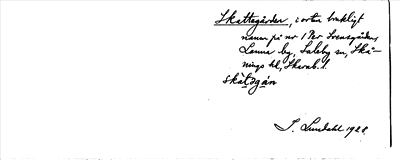 Skattegården, i orten brukligt
namn på nr 1 Per Svensgården
Lanna by, Saleby sn, Skå-
nings hd, Skarab. l.
skàtɘgán
S. Lundahl 1928